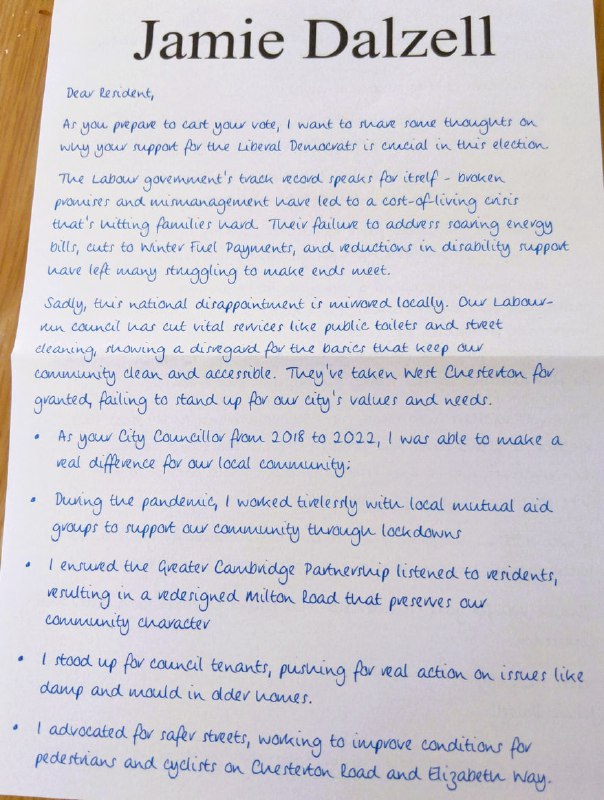 Jamie Dalzell
Dear Resident,
As you prepare to cast your vote, I want to share some thoughts on
why your support for the Liberal Democrats is crucial in this election.
The Labour government's track record speaks for itself - broken
promises and mismanagement have led to a cost-of-living crisis
that's hitting families hard. Their failure to address soaring energy
bills, cuts to Winter Fuel Payments, and reductions in disability support
have left many struggling to make ends meet.
Sadly, this national disappointment is mirrored locally. Our Labour-
run council has cut vital services like public toilets and street
cleaning, showing a disregard for the basics that keep our
community clean and accessible. They've taken West Chesterton for
granted, failing to stand up for our city's values and needs.
• As your City Councillor from 2018 to 2022, I was able to make a
real difference for our local community:
• During the pandemic, I worked tirelessly with local mutual aid
groups to support our community through lockdowns
• I ensured the Greater Cambridge Partnership listened to residents,
resulting in a redesigned Milton Road that preserves our
community character
• I stood up for council tenants, pushing for real action on issues like
damp and mould in older homes.
• I advocated for safer streets, working to improve conditions for
pedestrians and cyclists on Chesterton Road and Elizabeth Way.